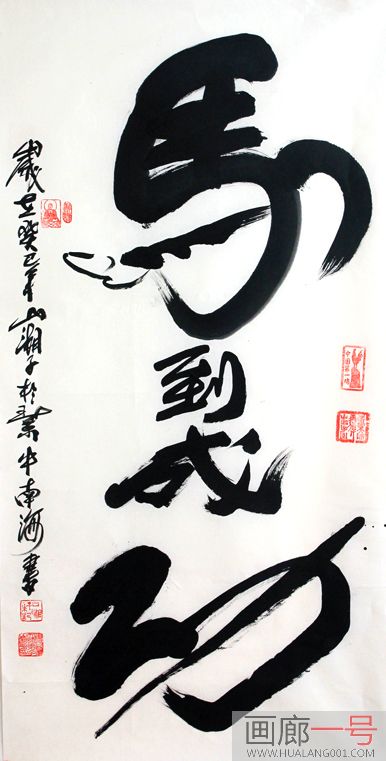 馬到成功
歲在癸巳年山湖子於業牛南海書
画廊一号
WWW.HUALANG001.COM